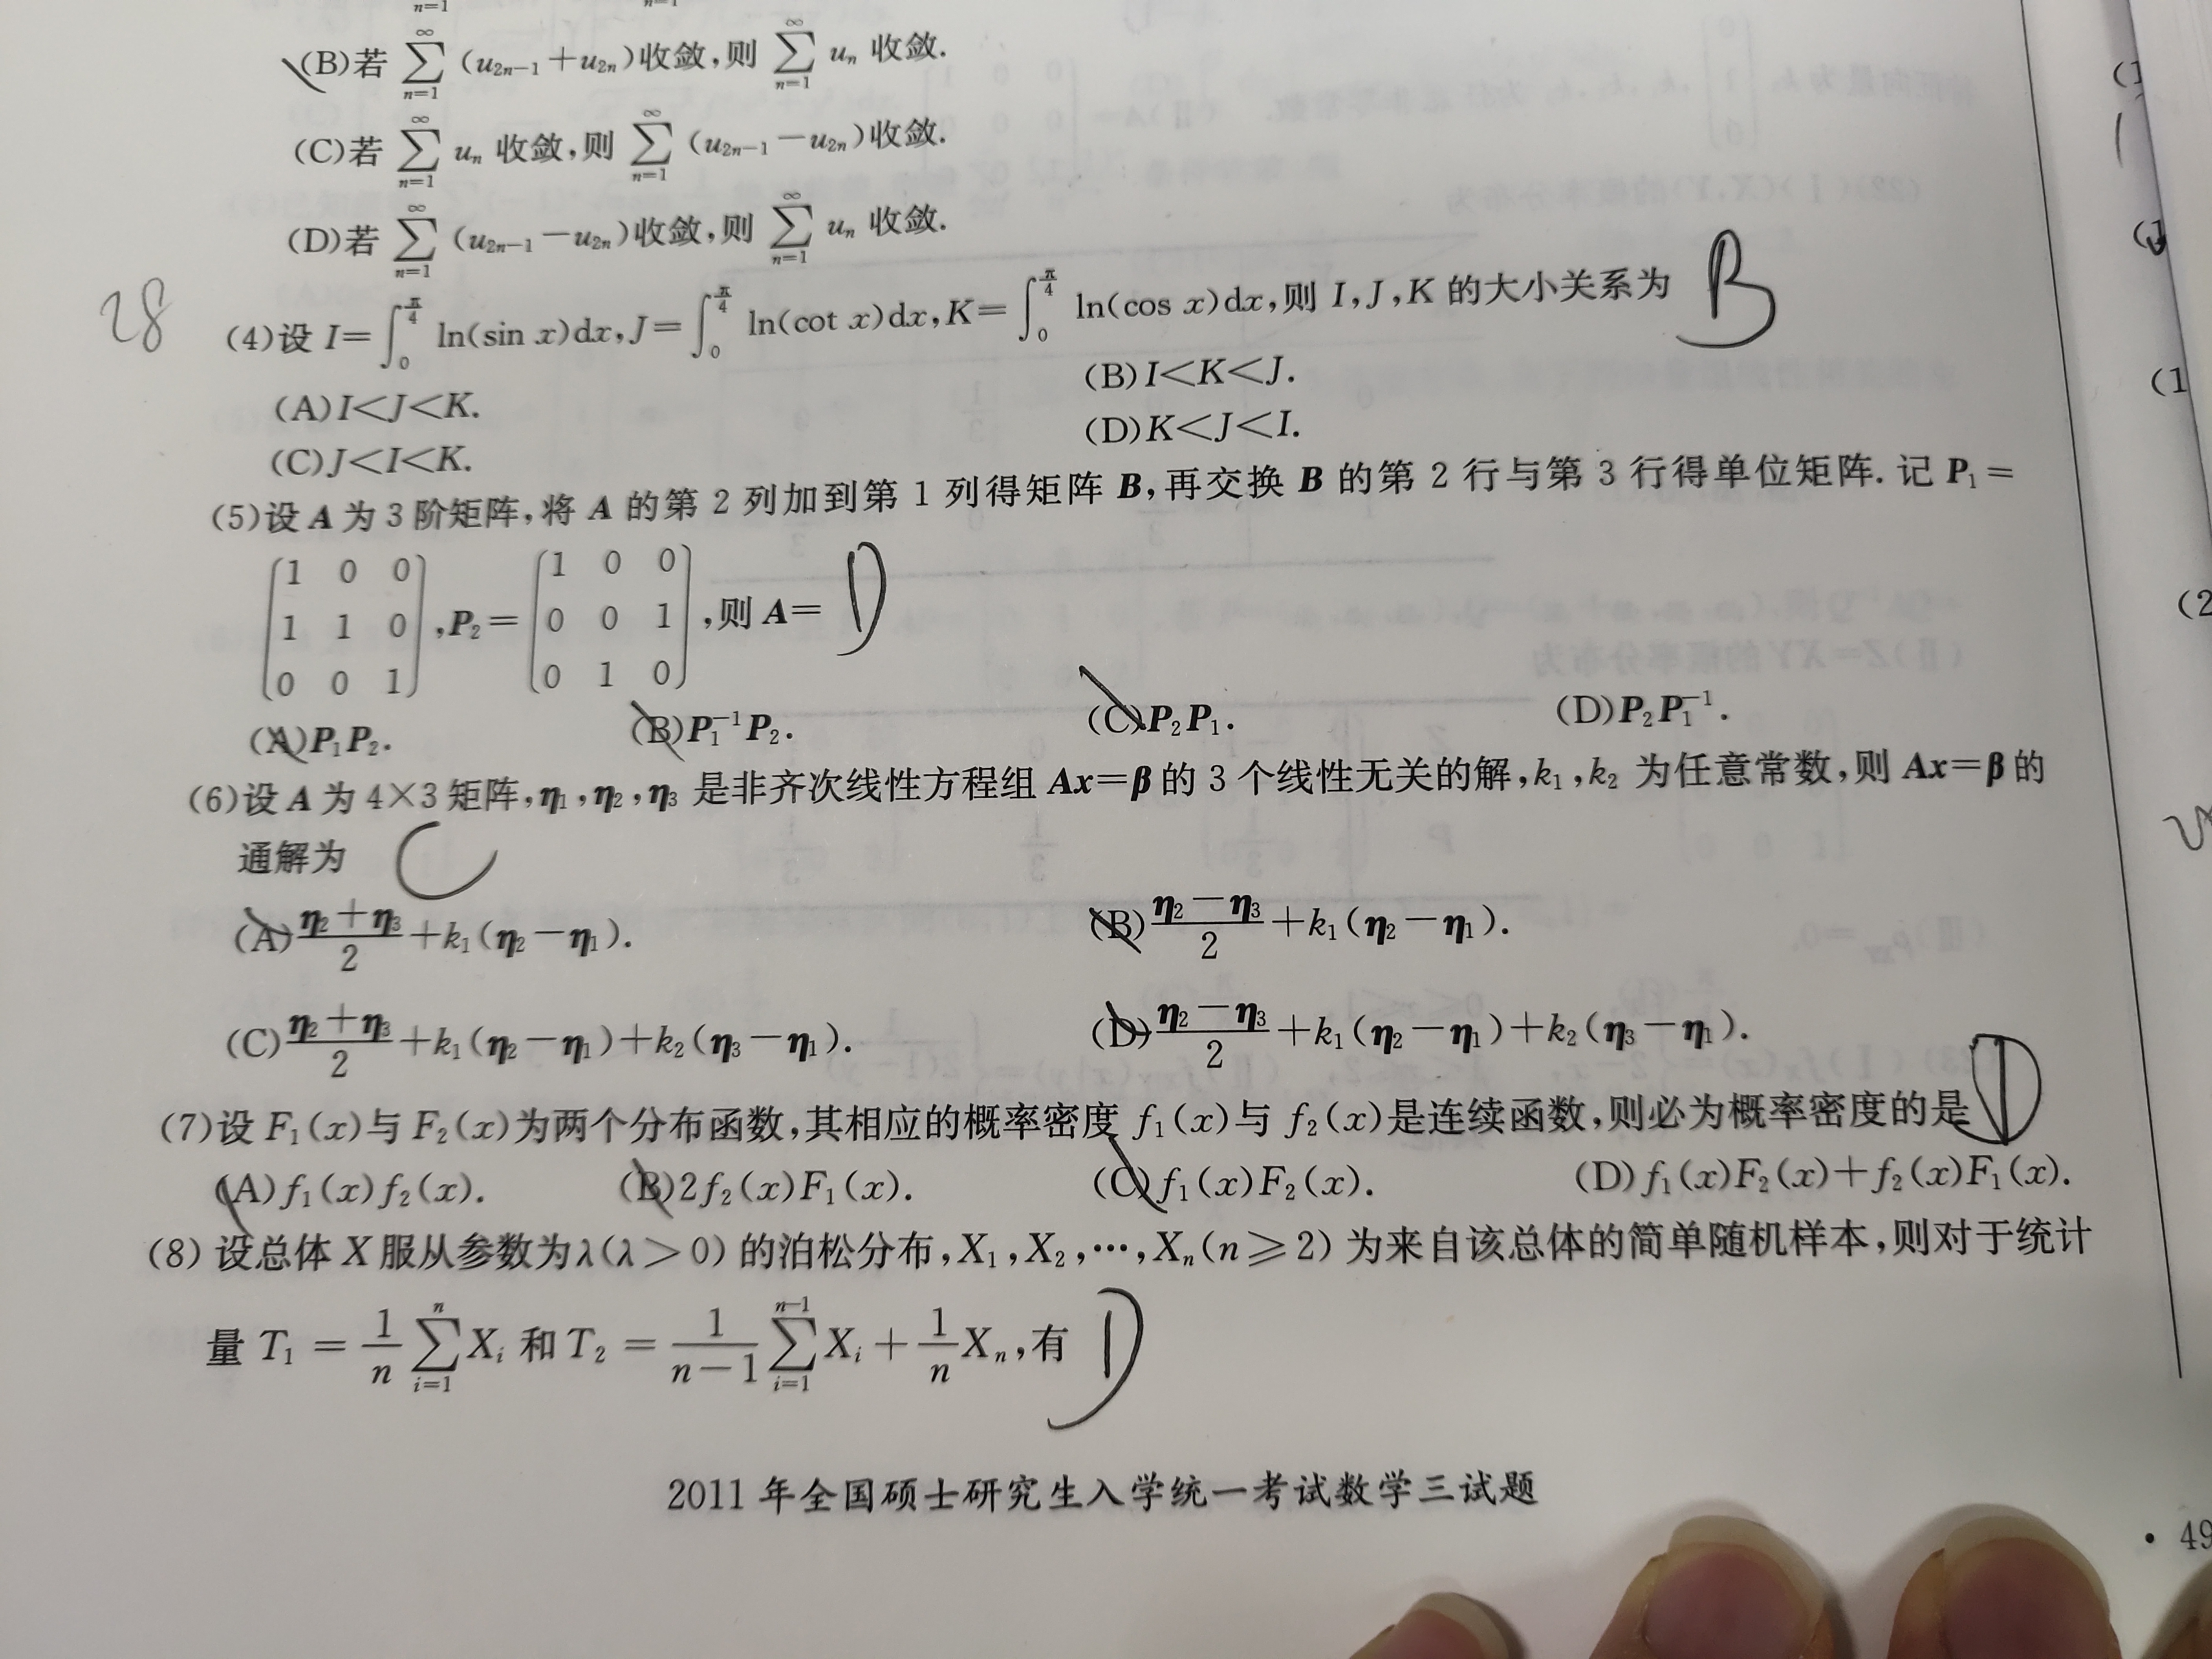 n=1 n=1
(B)若 ∑_{n=1}^{∞} (u_{2n-1}+u_{2n})收敛,则 ∑_{n=1}^{∞} u_n 收敛.
(C)若 ∑_{n=1}^{∞} u_n 收敛,则 ∑_{n=1}^{∞} (u_{2n-1}-u_{2n})收敛.
(D)若 ∑_{n=1}^{∞} (u_{2n-1}-u_{2n})收敛,则 ∑_{n=1}^{∞} u_n 收敛.
28 (4)设 I=∫_0^{π/4} ln(sin x)dx,J=∫_0^{π/4} ln(cot x)dx,K=∫_0^{π/4} ln(cos x)dx,则 I,J,K 的大小关系为 B
(A)I<J<K. (B)I<K<J.
(C)J<I<K. (D)K<J<I.
(5)设 A 为 3 阶矩阵,将 A 的第 2 列加到第 1 列得矩阵 B,再交换 B 的第 2 行与第 3 行得单位矩阵. 记 P₁=
[1 0 0; 1 1 0; 0 0 1],P₂=[1 0 0; 0 0 1; 0 1 0],则 A= D
(A)P₁P₂. (B)P₁⁻¹P₂. (C)P₂P₁. (D)P₂P₁⁻¹.
(6)设 A 为 4×3 矩阵,η₁,η₂,η₃ 是非齐次线性方程组 Ax=β 的 3 个线性无关的解,k₁,k₂ 为任意常数,则 Ax=β 的
通解为 C
(A)(η₂+η₃)/2+k₁(η₂-η₁). (B)(η₂-η₃)/2+k₁(η₂-η₁).
(C)(η₂+η₃)/2+k₁(η₂-η₁)+k₂(η₃-η₁). (D)(η₂-η₃)/2+k₁(η₂-η₁)+k₂(η₃-η₁).
(7)设 F₁(x)与 F₂(x)为两个分布函数,其相应的概率密度 f₁(x)与 f₂(x)是连续函数,则必为概率密度的是 D
(A)f₁(x)f₂(x). (B)2f₂(x)F₁(x). (C)f₁(x)F₂(x). (D)f₁(x)F₂(x)+f₂(x)F₁(x).
(8) 设总体 X 服从参数为λ(λ>0) 的泊松分布,X₁,X₂,…,Xₙ(n≥2) 为来自该总体的简单随机样本,则对于统计
量 T₁ = 1/n ∑_{i=1}^{n} X_i 和 T₂ = 1/(n-1) ∑_{i=1}^{n-1} X_i + 1/n X_n,有 D
2011 年全国硕士研究生入学统一考试数学三试题
· 49